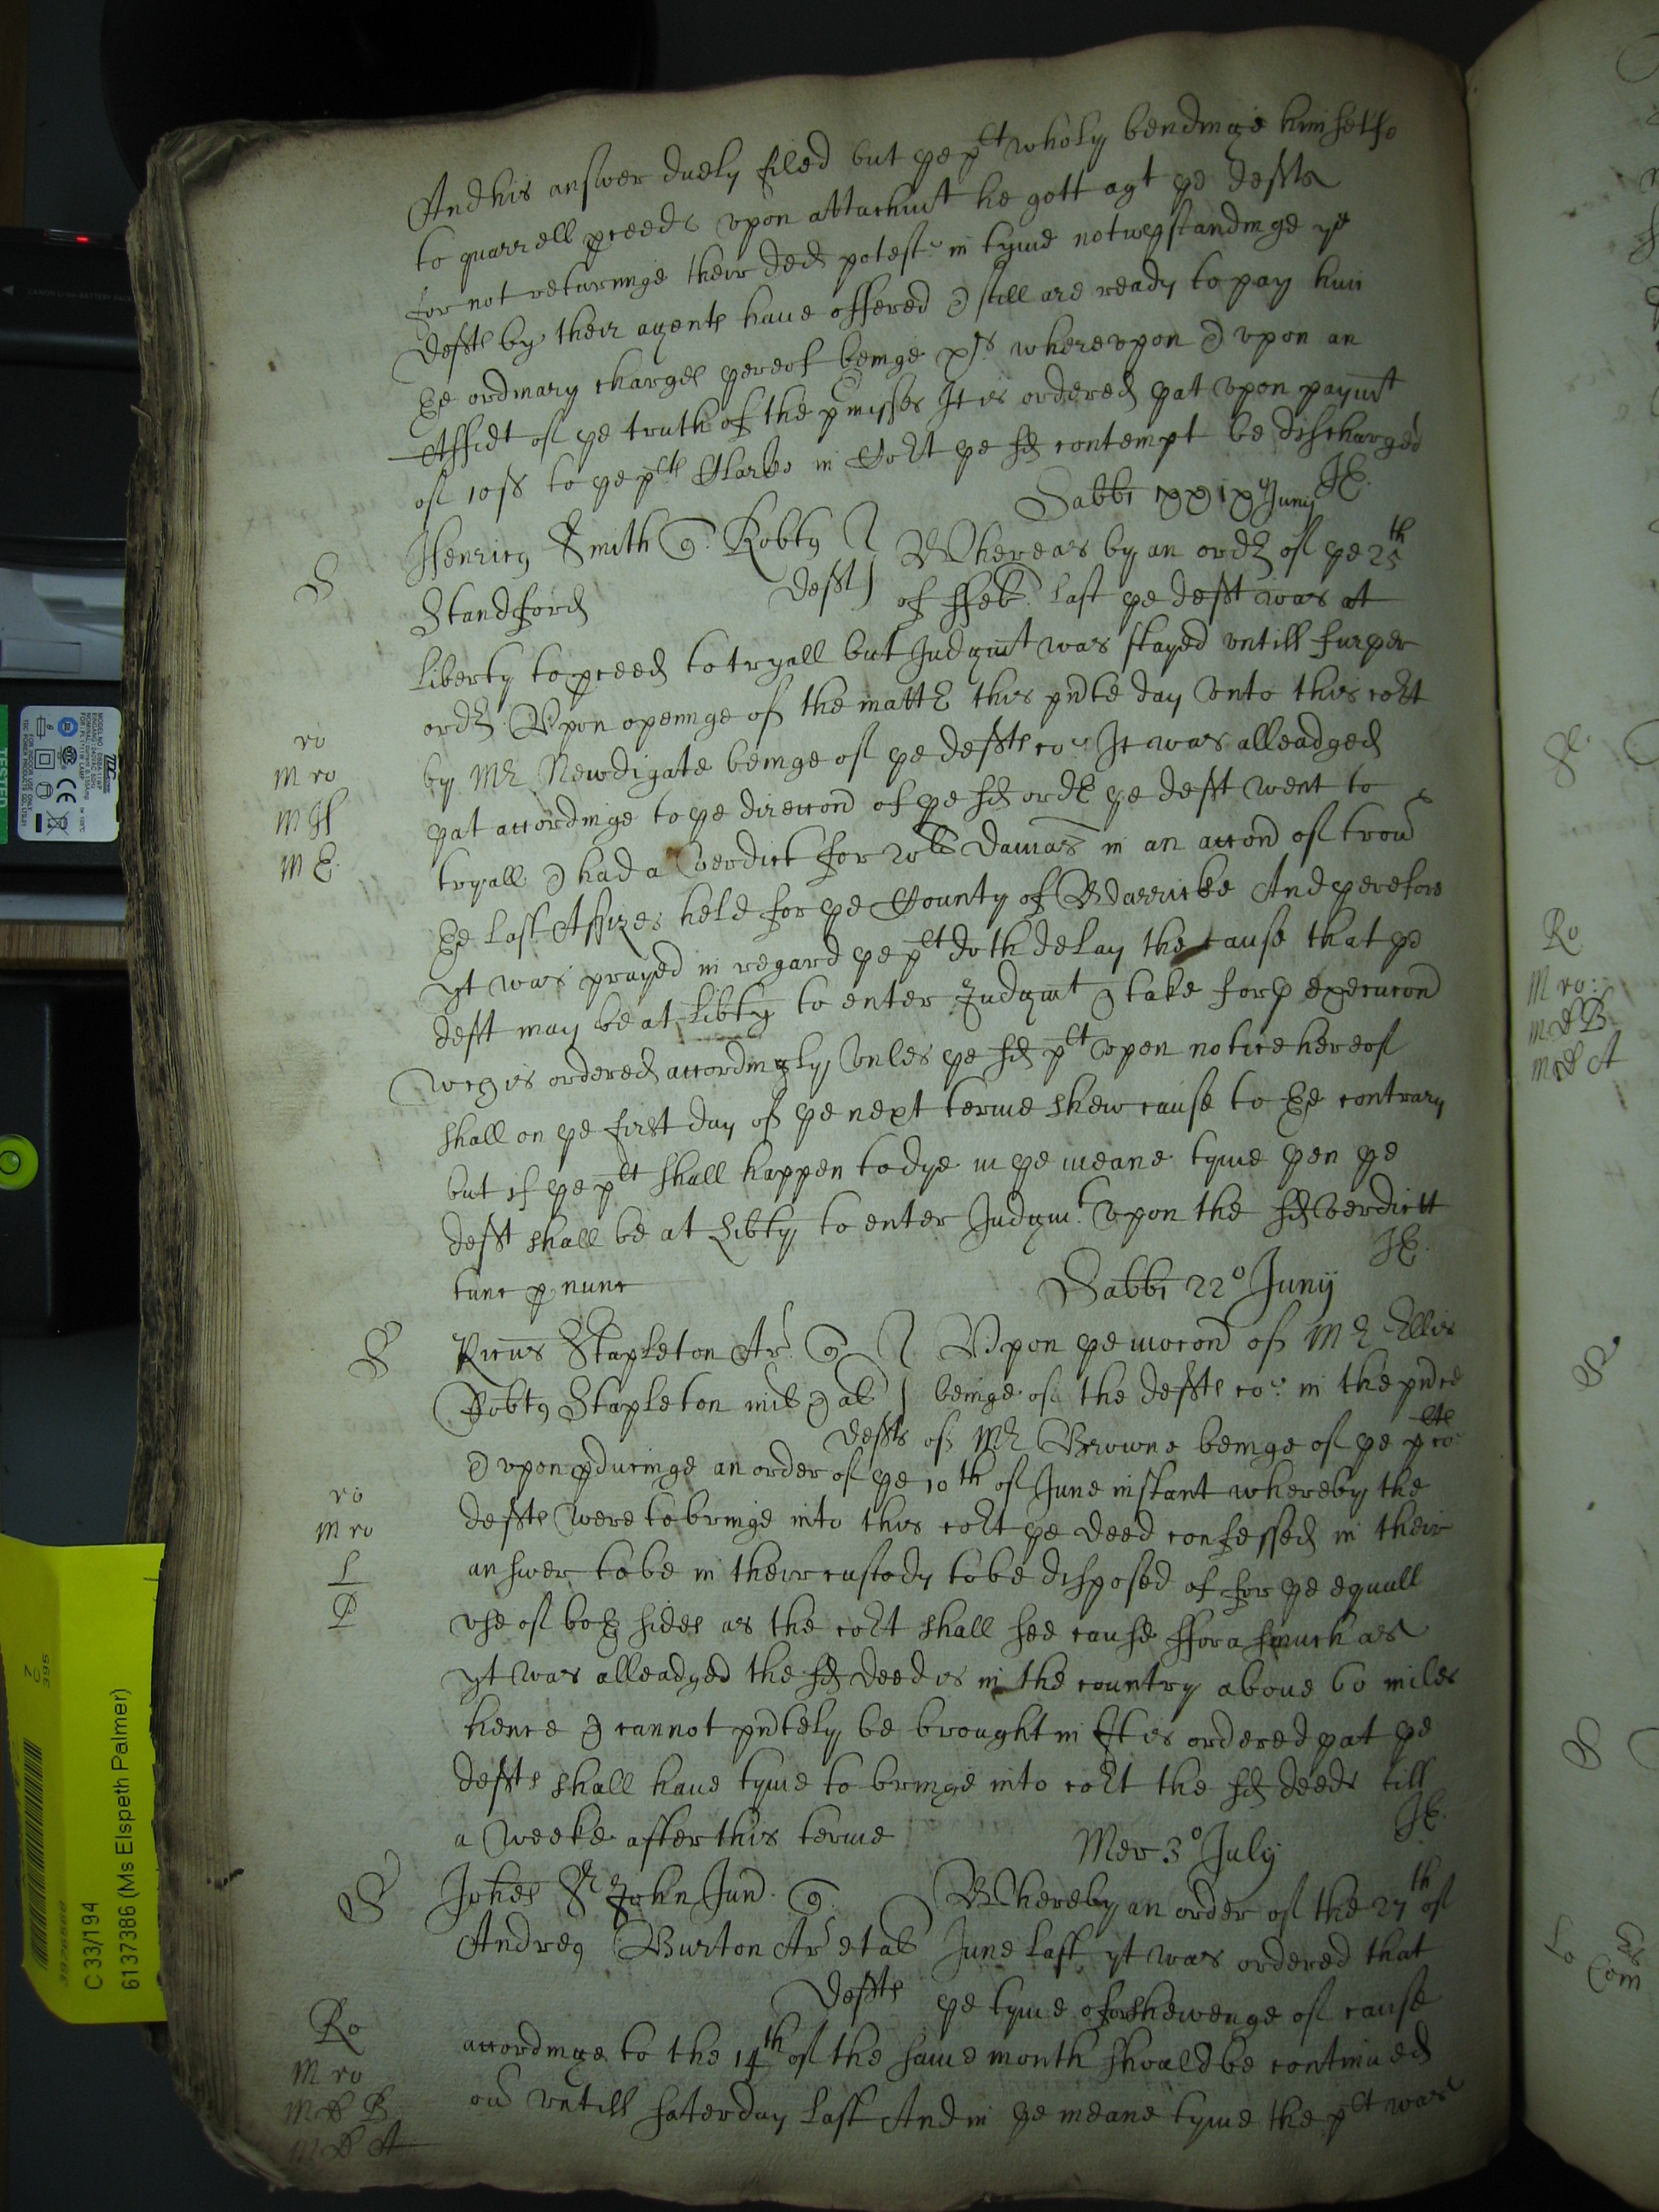 And his answer duely filed but ye plt wholy bendinge himselfe
to quarrell pceeds vpon attachmt he gott agt ye defts
for not returninge their ded potest in tyme notwthstandinge ye
defts by their agents haue offered & still are ready to pay him
ye ordinary charges yereof beinge xs. wherevpon & vpon an
Affidt of ye truth of the pmisses It is ordered yat vpon paymt
of 10s to ye plts Clarke in Cort ye sd contempt be discharged
Sabbi Junij JE.
S
Henricus Smith q. Robtus
Whereas by an ordr of ye 25th
Standford deft
of ffeb. last ye deft was at
liberty to pceed to tryall but Judgmt was stayed vntill furyer
ordr. Vpon openinge of the mattr this pnte day vnto this cort
by Mr Newdigate beinge of ye defts co: It was alleadged
yat accordinge to ye direccon of ye sd ordr ye deft went to
tryall & had a verdict for damas in an accon of trou
ye last Assizes held for ye County of Warricke And yerefore
yt was prayed in regard ye plt doth delay the cause that ye
deft may be at libty to enter Judgmt & take forth execucon
wch is ordered accordingly vnles ye sd plt vpon notice hereof
shall on ye first day of ye next terme shew cause to ye contrary
but if ye plt shall happen to dye in ye meane tyme yen ye
deft shall be at libty to enter Judgmt. vpon the sd verdict
tunc p nunc
JE.
ro
M ro
M H
M E.
Sabbi 22o Junij
S
Ricus Stapleton Ar. q
Vpon ye mocon of Mr Ellis
Robtus Stapleton mil & al
beinge of the defts co: in the pnce
defts
of Mr Browne beinge of ye plts co
& vpon pducinge an order of ye 10th of June instant whereby the
defts were to bringe into this cort ye deed confessed in their
answer to be in their custody to be disposed of for ye equall
vse of both sides as the cort shall see cause fforasmuch as
yt was alleadged the sd deed is in the country aboue 60 miles
hence & cannot pntely be brought in It is ordered yat ye
defts shall haue tyme to bringe into cort the sd deeds till
a weeke after this terme
JE.
ro
M ro
Mer 3o July
S
Johes St John Jun. q.
Whereby an order of the 27th of
Andreus Burton Ar et al
June last yt was ordered that
defts
ye tyme for shewenge of cause
accordinge to the 14th of the same month should be continued
ou vntill saterday last And in ye meane tyme the plt was
Ro
M ro
M B
M A
Ro
M ro:
C 33/194
6137386 (Ms Elspeth Palmer)
TESTED